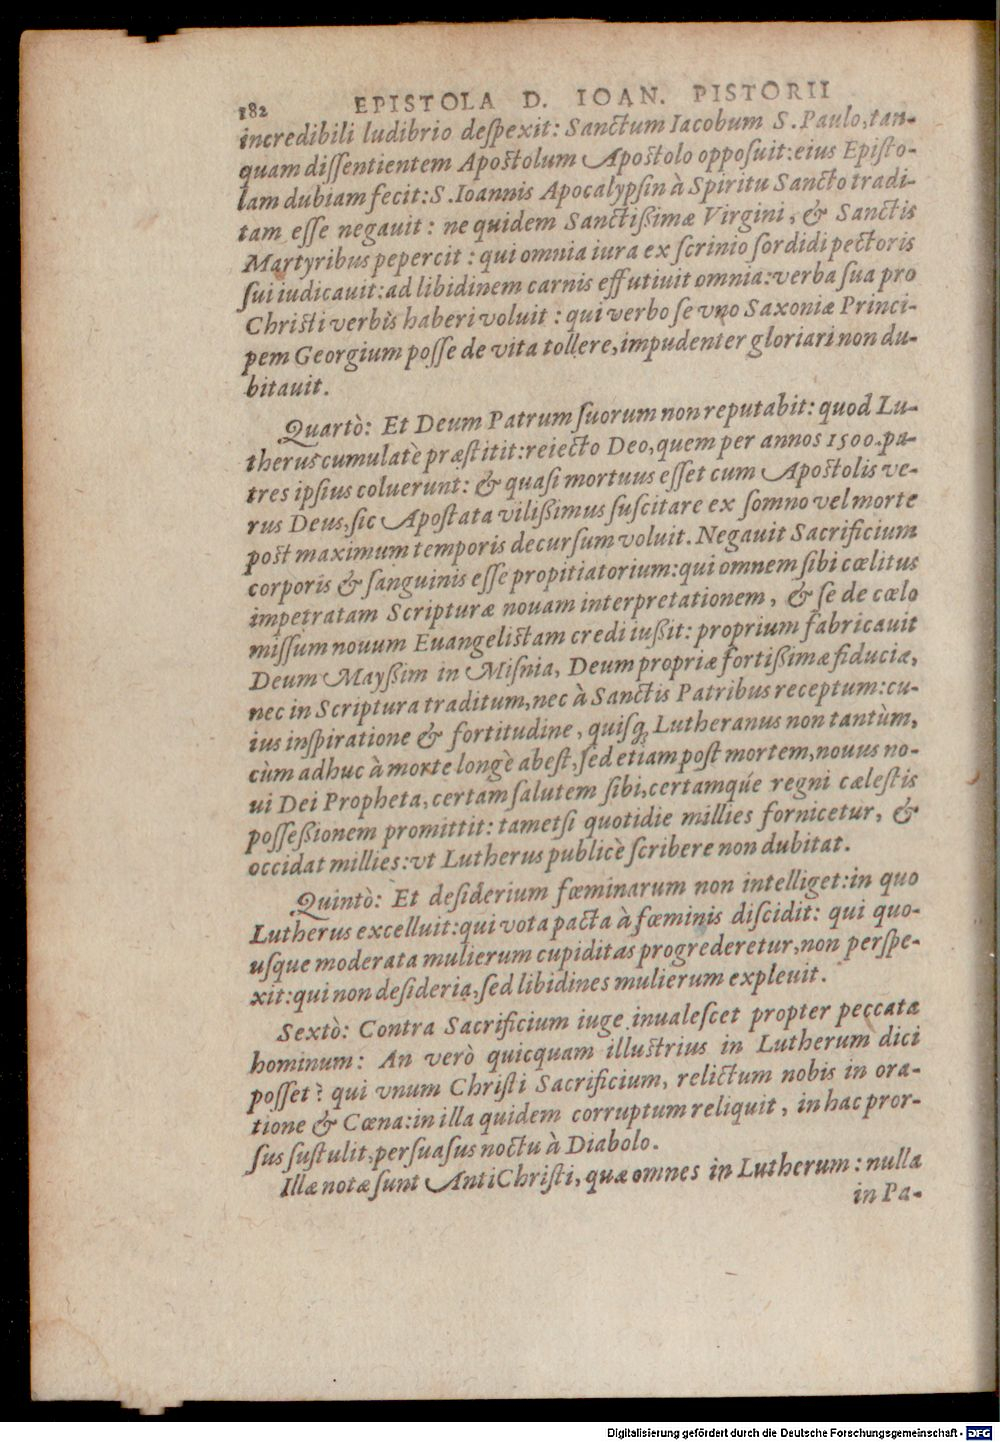 182 EPISTOLA D. IOAN. PISTORII
incredibili ludibrio deſpexit: Sanctum Iacobum S. Paulo, tan-
quam diſſentientem Apoſtolum Apoſtolo oppoſuit: eius Epiſto-
lam dubiam fecit: S. Ioannis Apocalypſin à Spiritu Sancto tradi-
tam eſſe negauit: ne quidem Sanctißimæ Virgini, & Sanctis
Martyribus pepercit: qui omnia iura ex ſcrinio ſordidi pectoris
ſui iudicauit: ad libidinem carnis effutiuit omnia: verba ſua pro
Chriſti verbis haberi voluit: qui verbo ſe vno Saxoniæ Princi-
pem Georgium poſſe de vita tollere, impudenter gloriari non du-
bitauit.
Quartò: Et Deum Patrum ſuorum non reputabit: quod Lu-
therus cumulatè præſtitit: reiecto Deo, quem per annos 1500. pa-
tres ipſius coluerunt: & quaſi mortuus eſſet cum Apoſtolis ve-
rus Deus, ſic Apoſtata vilißimus ſuſcitare ex ſomno vel morte
poſt maximum temporis decurſum voluit. Negauit Sacrificium
corporis & ſanguinis eſſe propitiatorium: qui omnem ſibi cœlitus
impetratam Scripturæ nouam interpretationem, & ſe de cœlo
miſſum nouum Euangeliſtam credi iußit: proprium fabricauit
Deum Mayßim in Miſnia, Deum propriæ fortißimæ fiduciæ,
nec in Scriptura traditum, nec à Sanctis Patribus receptum: cu-
ius inſpiratione & fortitudine, quiſq; Lutheranus non tantùm,
cùm adhuc à morte longè abeſt, ſed etiam poſt mortem, nouus no-
ui Dei Propheta, certam ſalutem ſibi, certamqúe regni cæleſtis
poſſeßionem promittit: tametſi quotidie millies fornicetur, &
occidat millies: vt Lutherus publicè ſcribere non dubitat.
Quintò: Et deſiderium fœminarum non intelliget: in quo
Lutherus excelluit: qui vota pacta à fœminis diſcidit: qui quo-
uſque moderata mulierum cupiditas progrederetur, non perſpe-
xit: qui non deſideria, ſed libidines mulierum expleuit.
Sextò: Contra Sacrificium iuge inualeſcet propter peccata
hominum: An verò quicquam illuſtrius in Lutherum dici
poſſet? qui vnum Chriſti Sacrificium, relictum nobis in ora-
tione & Cœna: in illa quidem corruptum reliquit, in hac pror-
ſus ſuſtulit, perſuaſus noctu à Diabolo.
Illæ notæ ſunt AntiChriſti, quæ omnes in Lutherum: nulla
in Pa-
Digitalisierung gefördert durch die Deutsche Forschungsgemeinschaft - DFG